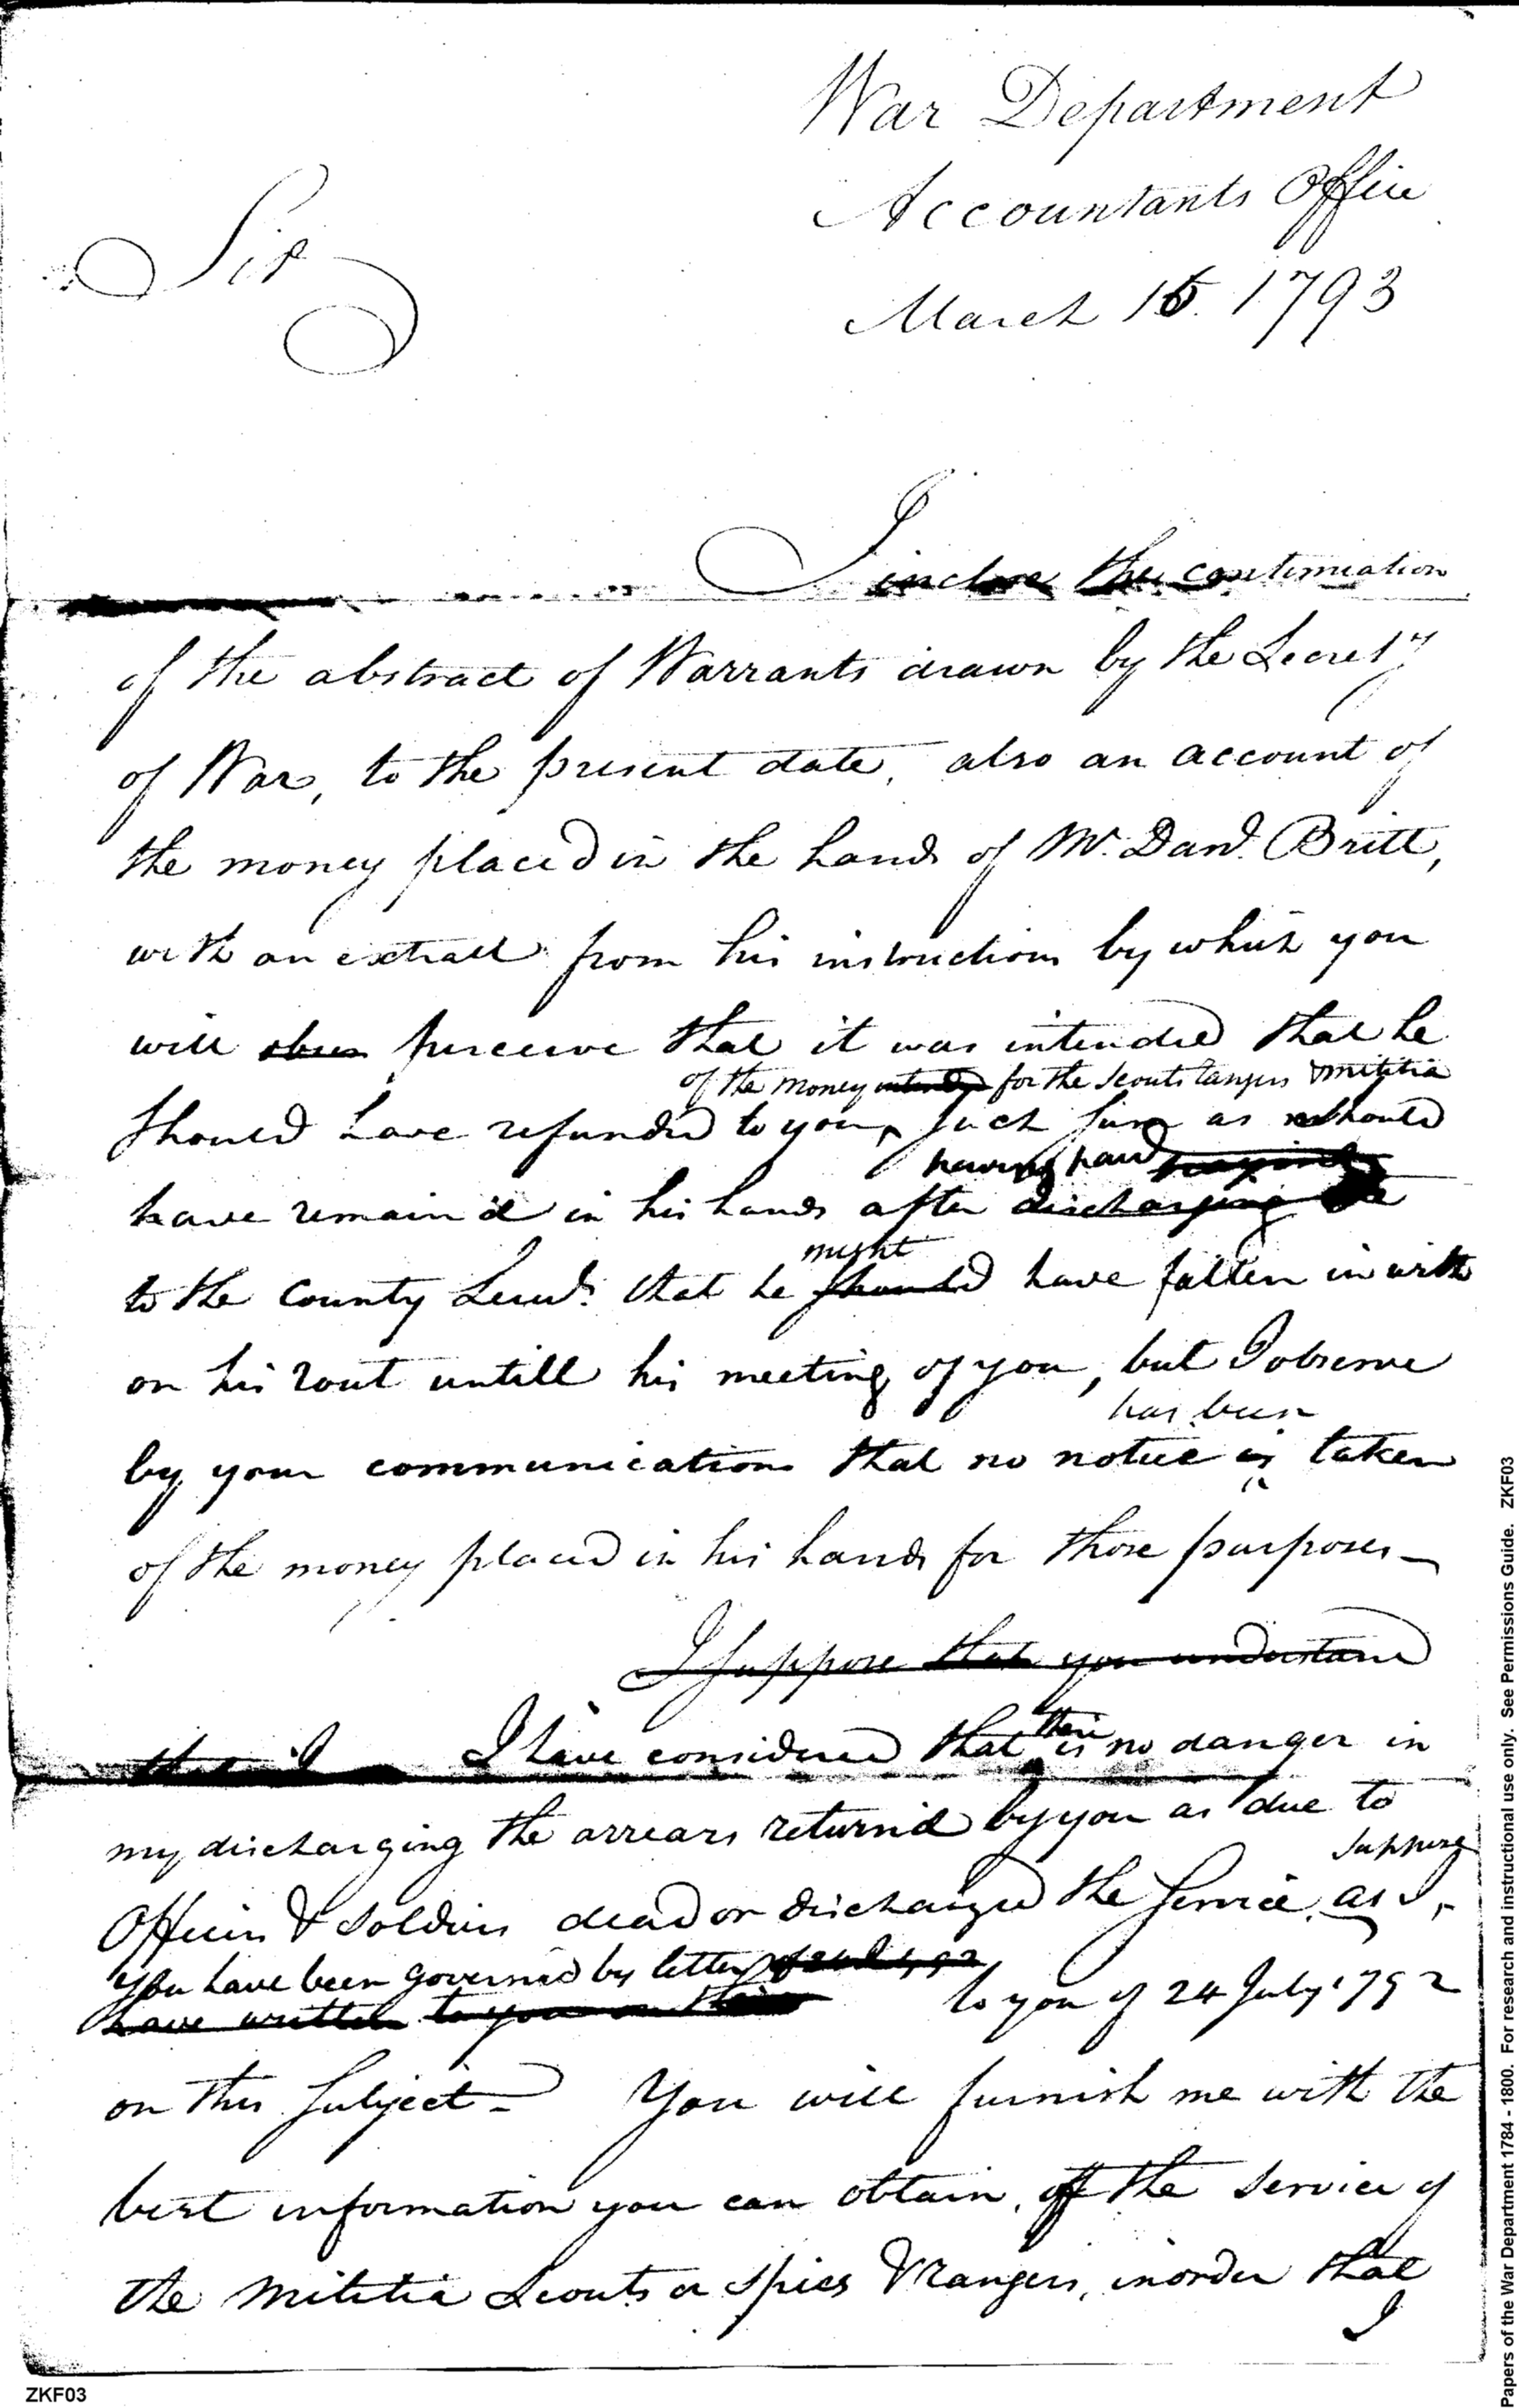 War Department
Accountants Office
March 15. 1793
Sir
I inclose the continuation
of the abstract of Warrants drawn by the Secrety
of War, to the present date, also an account of
the money placed in the hands of Mr. Danl. Britt,
with an extract from his instructions by which you
will obser perceive that it was intended that he
of the money intended for the Scouts rangers & militia
should have refunded to you, such sum as should
having paid paying
have remain'd in his hands after discharging the
might
to the County Lieuts. that he should have fallen in with
on his rout untill his meeting of you, but I observe
has been
by your communications that no notice is taken
of the money placed in his hands for those purposes—
I suppose that you understand
that I have considered that there is no danger in
my discharging the arrears return'd by you as due to
suppose
Officers & soldiers dead or discharged the Service, as I,
you have been governed by letter
to you of 24 July 1792
have written to you on this
on this subject— You will furnish me with the
best information you can obtain, of the service of
the Militia Scouts or spies & Rangers, in order that
I
ZKF03
Papers of the War Department 1784 - 1800. For research and instructional use only. See Permissions Guide. ZKF03